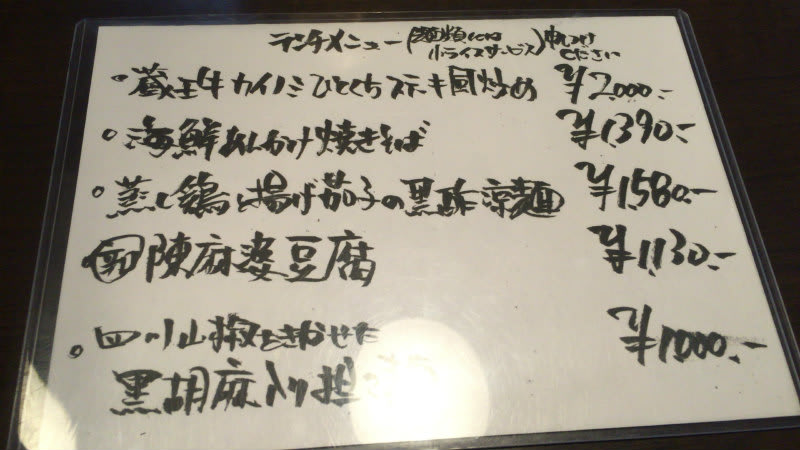 ランチメニュー(麺類には 小ライスサービス)申しつけ ください
・蔵王牛カイノミひとくちステーキ風炒め ¥2,000.-
・海鮮あんかけ焼きそば ¥1,390.-
・蒸し鶏と揚げ茄子の黒酢涼麺 ¥1,580.-
陳麻婆豆腐 ¥1,130.-
・四川山椒をきかせた ¥1,000.-
黒胡麻入り担